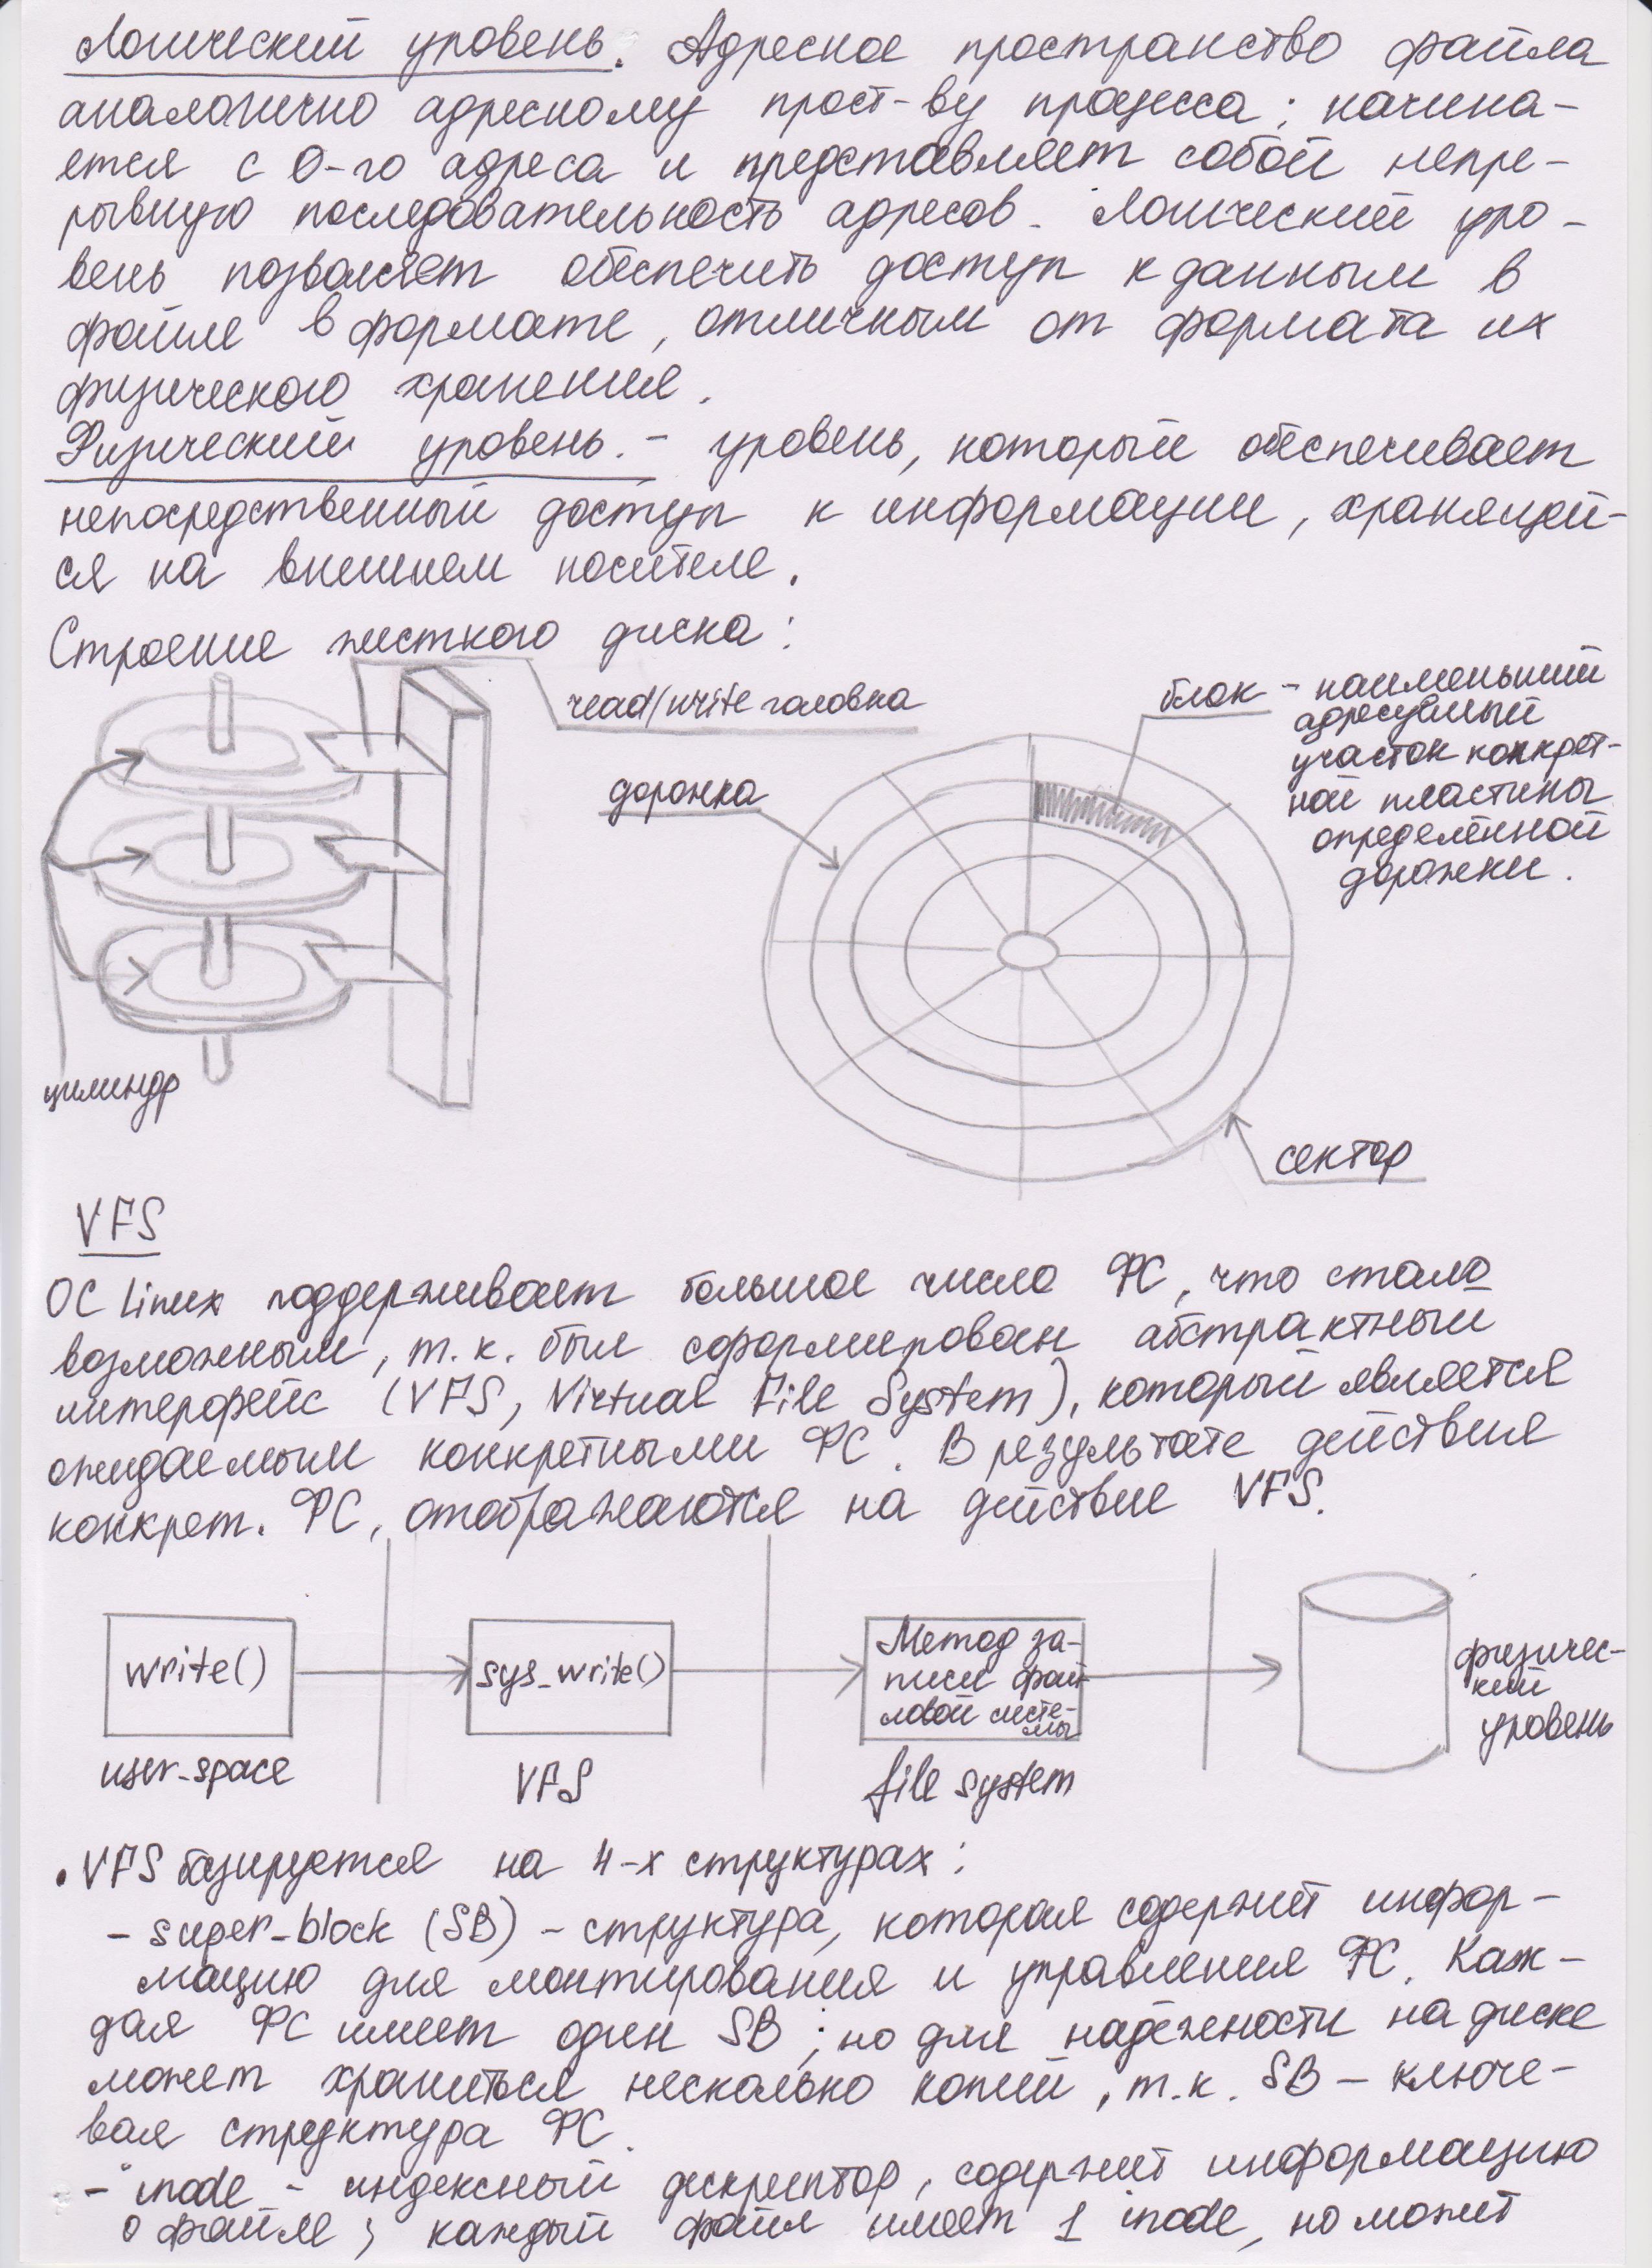 Логический уровень. Адресное пространство файла
аналогично адресному прост-ву процесса: начина-
ется с 0-го адреса и представляет собой непре-
рывную последовательность адресов. Логический уро-
вень позволяет обеспечить доступ к данным в
файле в формате, отличным от формата их
физического хранения.
Физический уровень. - уровень, который обеспечивает
непосредственный доступ к информации, хранящей-
ся на внешнем носителе.
Строение жесткого диска:
read/write головка
цилиндр
дорожка
блок - наименьший
адресуемый
участок конкрет-
ной пластины
определённой
дорожки.
сектор
VFS
ОС Linux поддерживает большое число ФС, что стало
возможным, т.к. был сформирован абстрактный
интерфейс (VFS, Virtual File System), который является
ожидаемым конкретными ФС. В результате действия
конкрет. ФС, отображаются на действие VFS.
write()
user_space
sys_write()
VFS
Метод за-
писи фай-
ловой систе-
мы
file system
физичес-
кий
уровень
• VFS базируется на 4-х структурах:
- super_block (SB) - структура, которая содержит инфор-
мацию для монтирования и управления ФС. Каж-
дая ФС имеет один SB; но для надёжности на диске
может храниться несколько копий, т.к. SB - ключе-
вая структура ФС.
- inode - индексный дескриптор, содержит информацию
о файле; каждый файл имеет 1 inode, но может